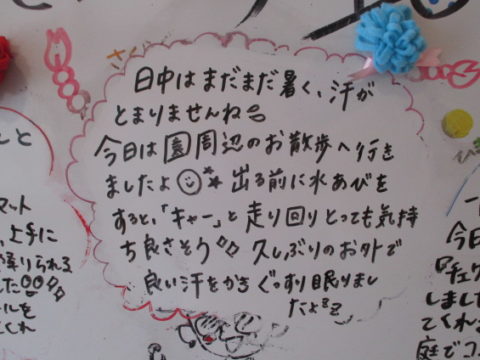 日中はまだまだ暑く、汗が
とまりませんね
今日は園周辺のお散歩へ行き
ましたよ☺★ 出る前に水あびを
すると、「キャー」と走り回りとっても気持
ち良さそう♪♪ 久しぶりのお外で
良い汗をかきぐっすり眠りまし
たよzz
と
マット
上手に
降りられる
した
ールを
くれ
今日
『チェッ
しました
てくれ
庭でコ